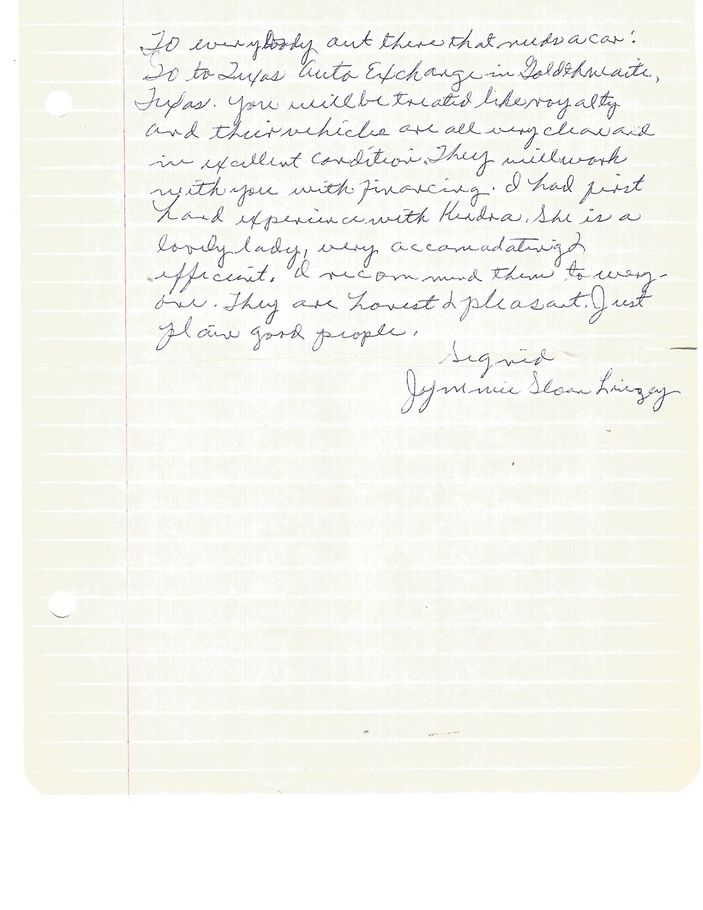 To everybody out there that needs a car:
Go to Texas Auto Exchange in Goldthwaite,
Texas. You will be treated like royalty
and their vehicles are all very clean and
in excellent condition. They will work
with you with financing. I had first
hand experience with Kendra. She is a
lovely lady, very accomadating &
efficient. I recommend them to every-
one. They are honest & pleasant. Just
plain good people.
Signed
Jymmie Sloan Linzey